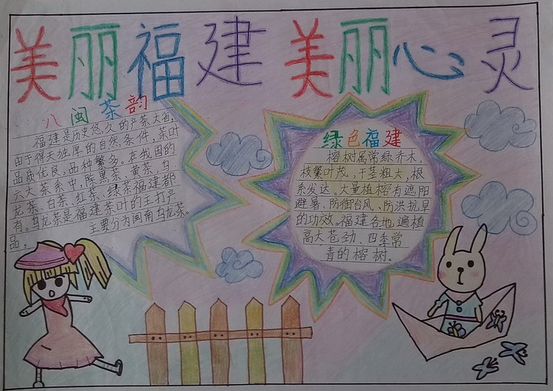 美丽福建 美丽心灵
八闽茶韵
福建是历史悠久的产茶大省,
由于得天独厚的自然条件,茶叶
品质优良,品种繁多,在我国的
六大茶系中,除黑茶、黄茶,乌
龙茶、白茶、红茶、绿茶福建都
有。乌龙茶是福建茶叶的主打产
品,主要分为闽南乌龙茶。
绿色福建
榕树属常绿乔木,
枝繁叶茂,干茎粗大,根
系发达,大量植榕有遮阳
避暑、防御台风、防洪抗旱
的功效。福建各地遍植
高大苍劲、四季常
青的榕树。